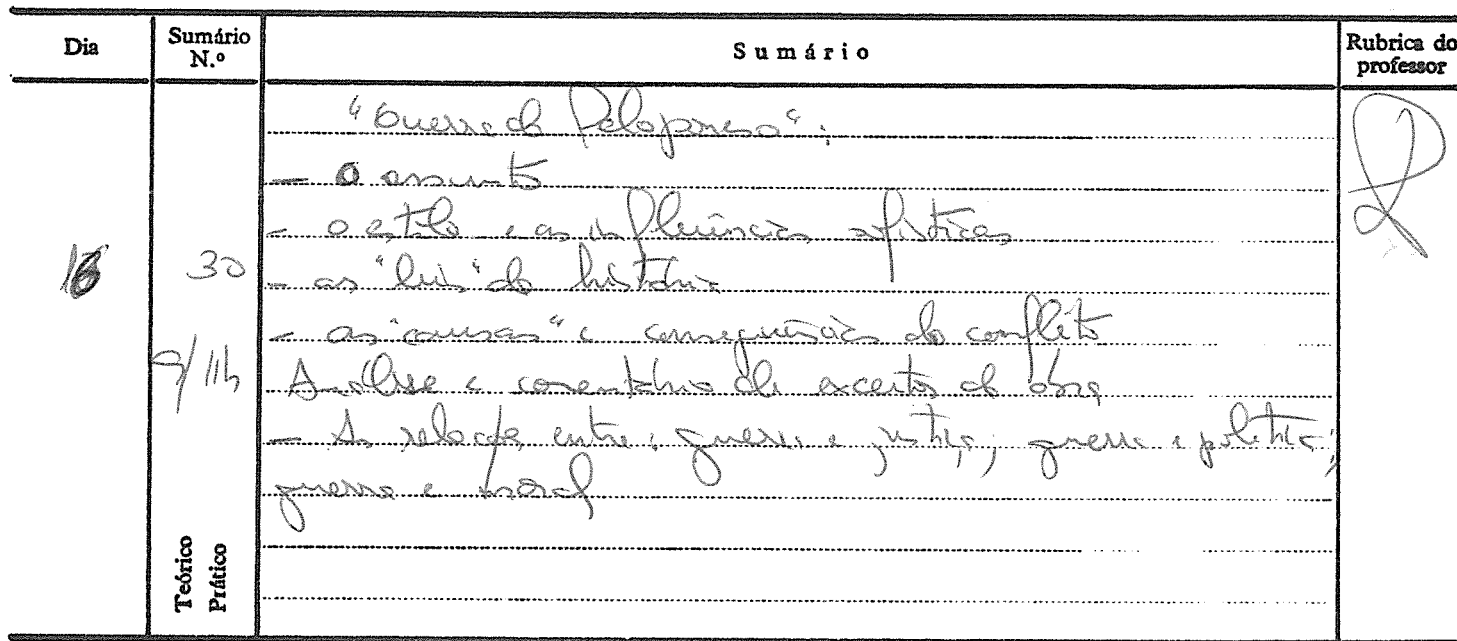 Dia Sumário N.º Sumário Rubrica do professor
"Guerra do Peloponeso":
- o assunto
- o estilo e as influências sofísticas
30
- as "leis" da história
- as "causas" e consequências do conflito
9/11h
Análise e comentário de excertos da obra
- As relações entre: guerra e justiça; guerra e política;
guerra e moral
Teórico
Prático